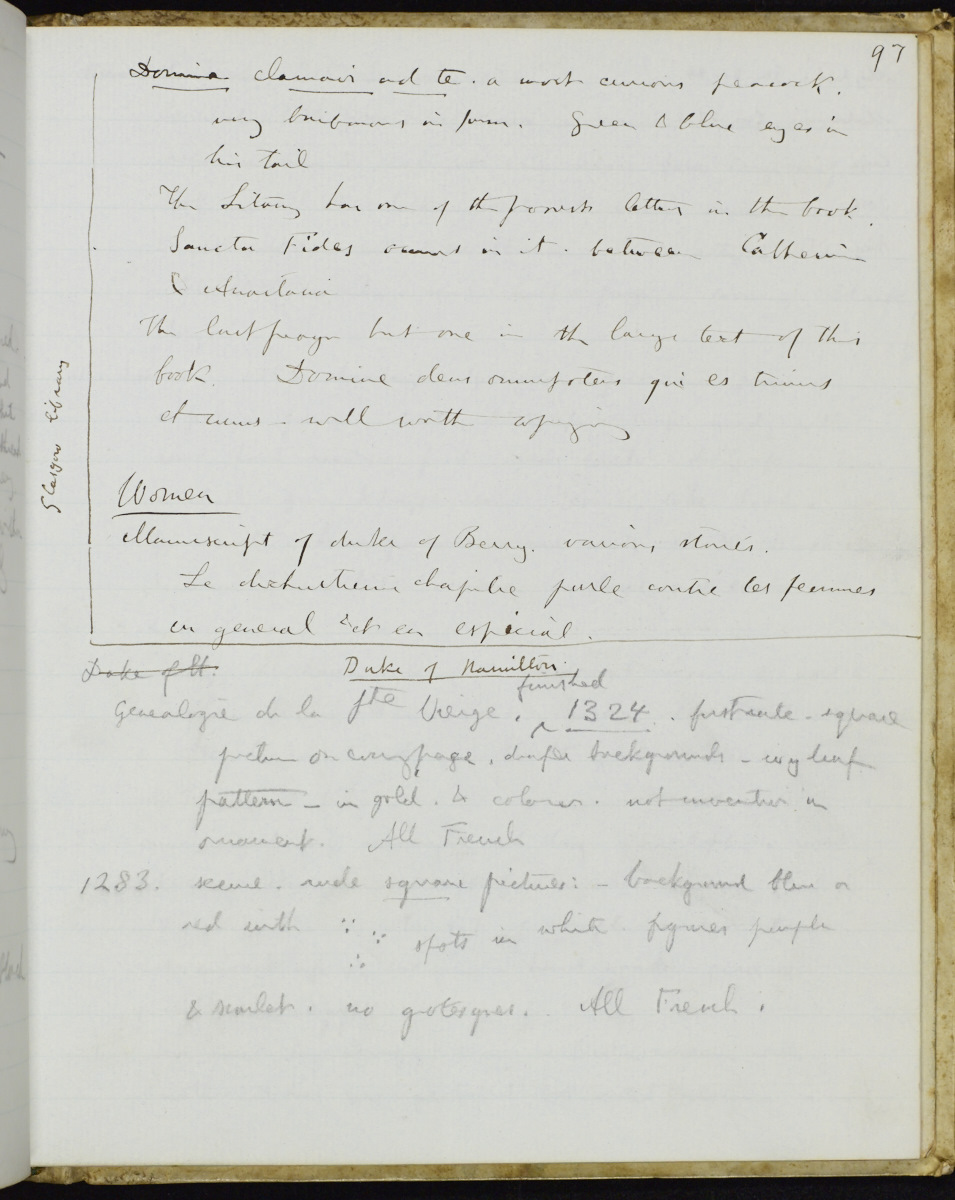 97
Domine clamavi ad te. a most curious peacock.
very barbarous in form. Green & blue eyes in
his tail
The Litany has one of the finest letters in the book.
Sancta Fides occurs in it. between Catherine
& Anastasia
The last page but one in the large text of this
book. Domine deus omnipotens qui es trinus
et unus - well worth copying
Glasgow library
Women
Manuscript of duke of Berry. various stories.
Le dixhuitieme chapitre parle contre les femmes
en general & et en especial.
Duke of H.
Duke of Hamilton.
finished
Genealogie de la Ste Vierge. ^ 1324. first rate - square
picture on every page, diaper backgrounds - ivy leaf
pattern - in gold. & colours. not inventive in
ornament. All French
1283. same. rude square pictures: - background blue or
red with spots in white. figures purple
& scarlet. no grotesques. All French.